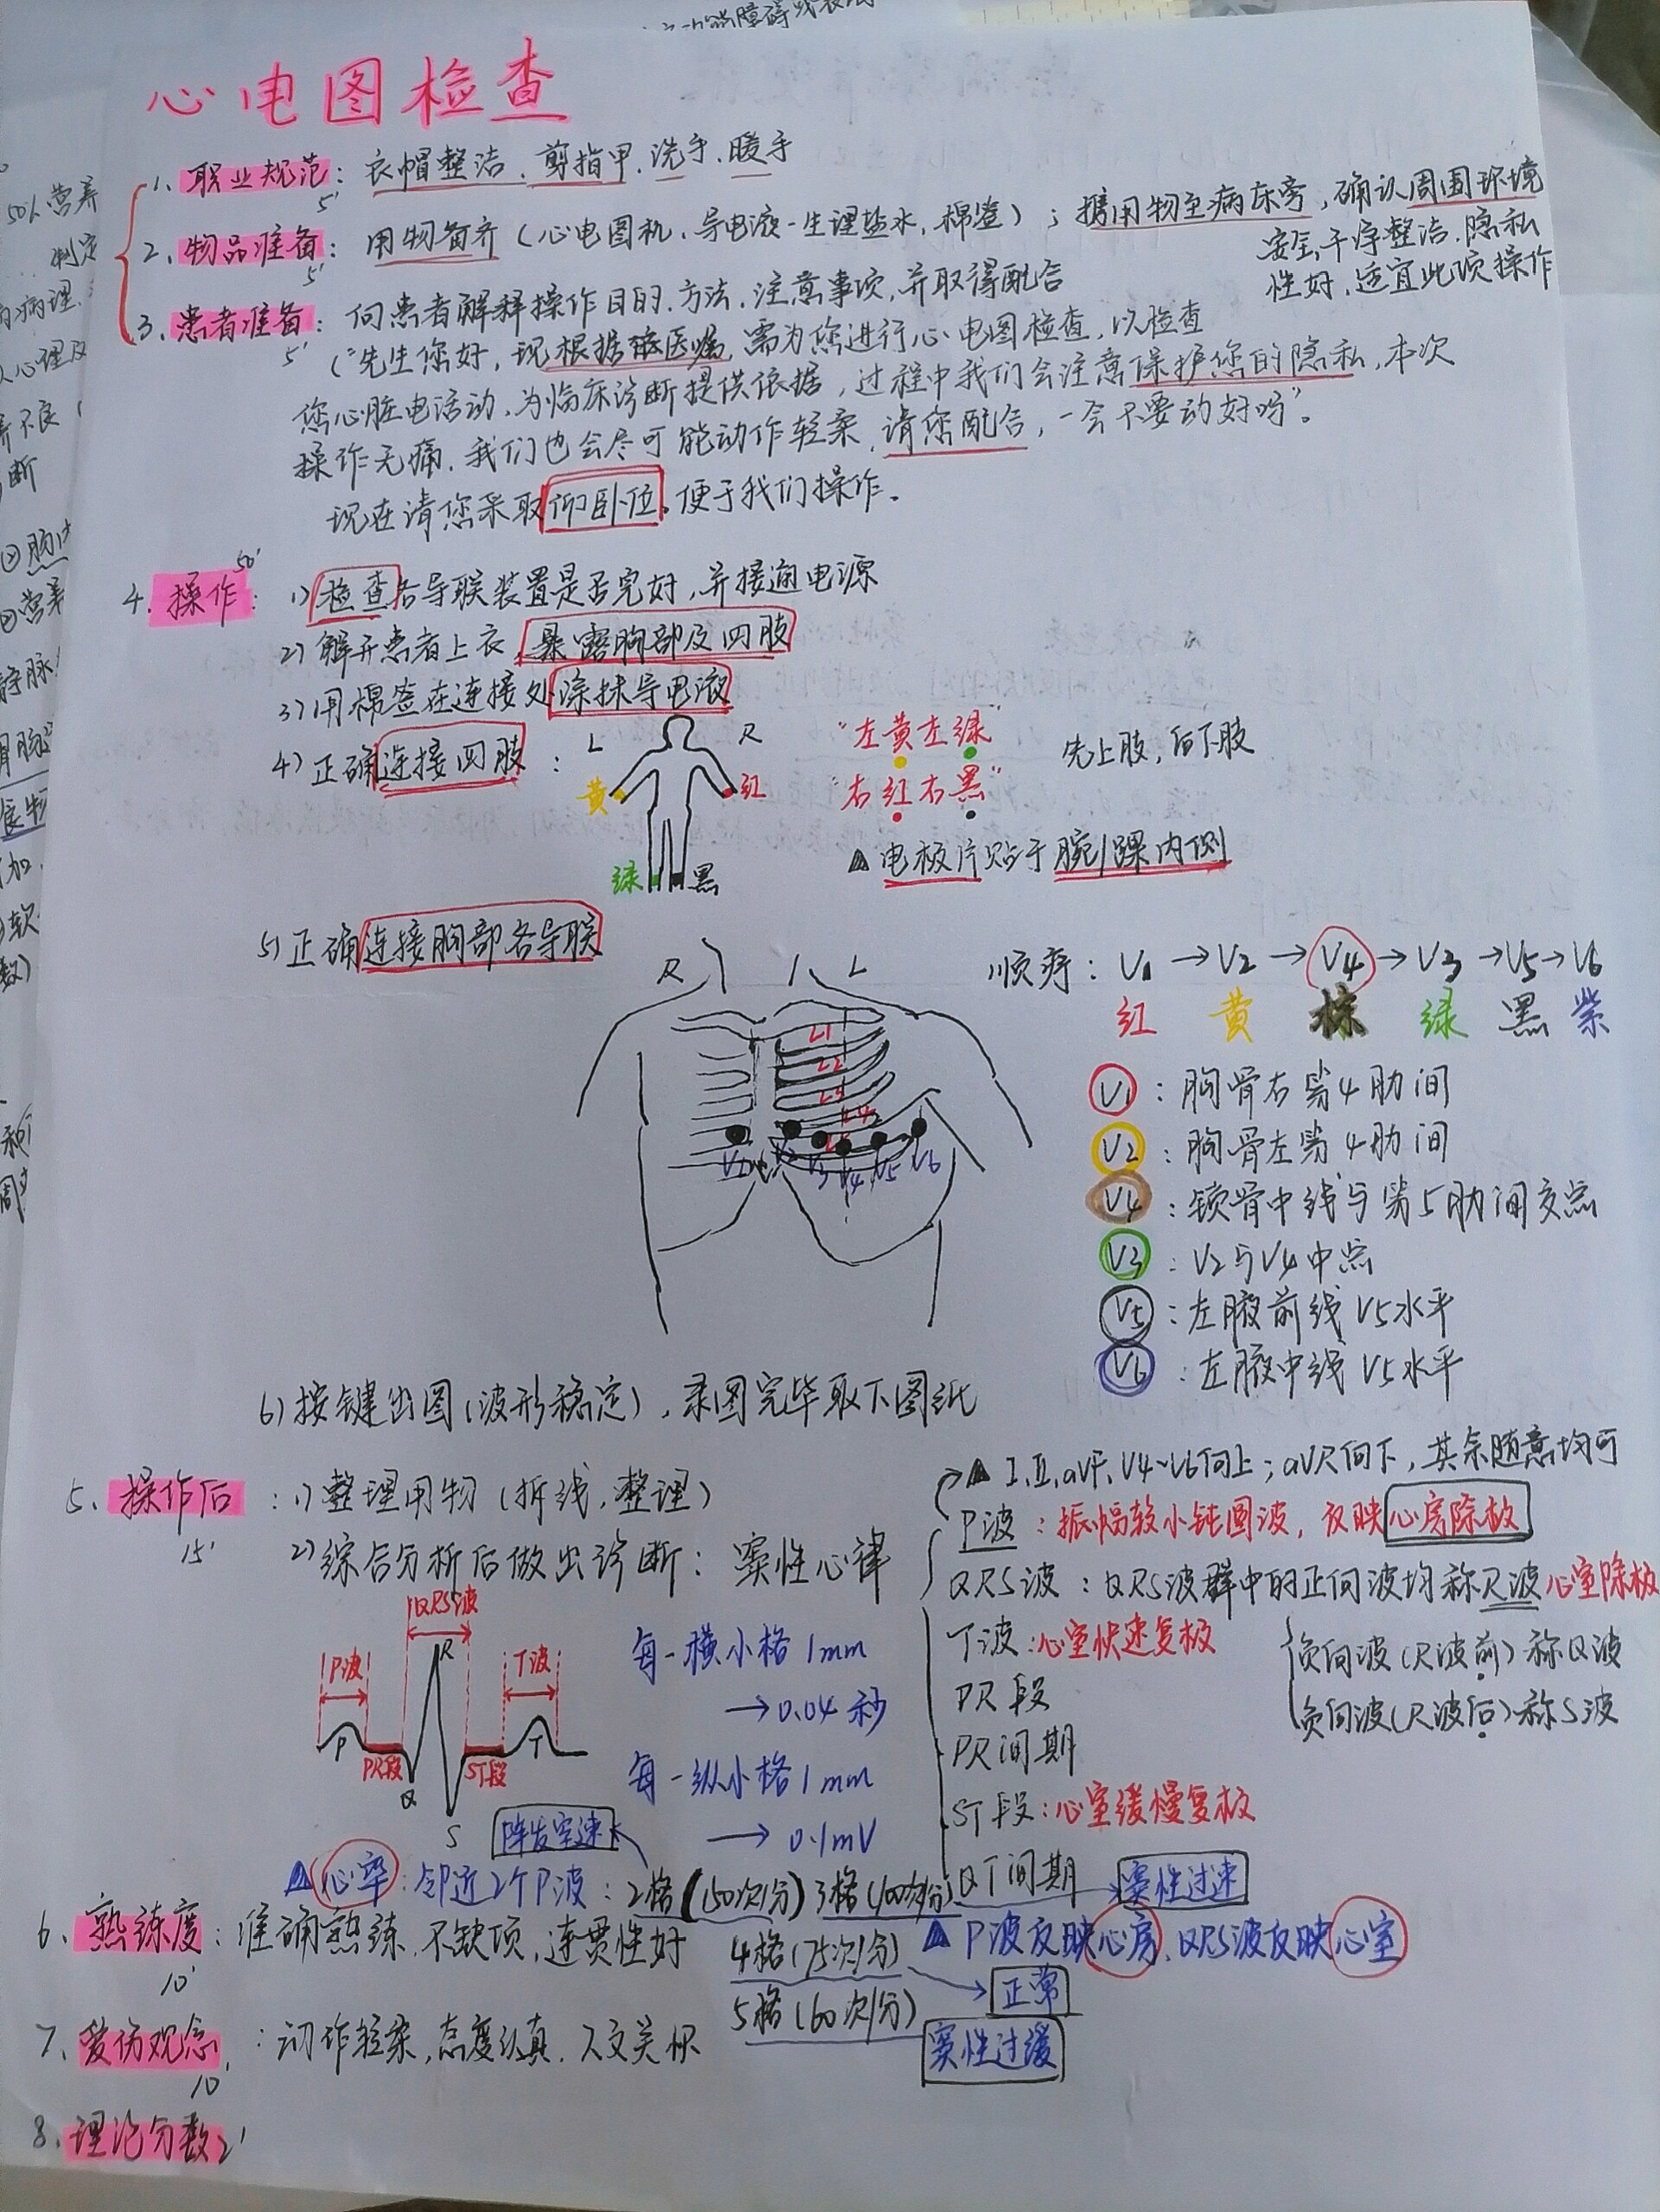 心电图检查
1. 职业规范: 衣帽整洁、剪指甲、洗手、暖手
5'
2. 物品准备: 用物备齐(心电图机、导电液-生理盐水、棉签); 携用物至病床旁,确认周围环境
安全,干净整洁,隐私
性好,适宜此项操作
5'
3. 患者准备: 向患者解释操作目的、方法、注意事项,并取得配合
5'
("先生您好,现根据医嘱,需为您进行心电图检查,以检查
您心脏电活动,为临床诊断提供依据,过程中我们会注意保护您的隐私,本次
操作无痛,我们也会尽可能动作轻柔,请您配合,一会不要动好吗"。
现在请您采取仰卧位,便于我们操作。
4. 操作: 50'
1) 检查各导联装置是否完好,并接通电源
2) 解开患者上衣,暴露胸部及四肢
3) 用棉签在连接处涂抹导电液
4) 正确连接四肢:
L R
黄 红
绿 黑
"左黄左绿"
"右红右黑"
先上肢,后下肢
▲ 电极片贴于腕/踝内侧
5) 正确连接胸部各导联
R L
L1
L2
L3
L4
V1 V2 V3 V4 V5 V6
顺序: V1→V2→V4→V3→V5→V6
红 黄 棕 绿 黑 紫
V1: 胸骨右第4肋间
V2: 胸骨左第4肋间
V4: 锁骨中线与第5肋间交点
V3: V2与V4中点
V5: 左腋前线V5水平
V6: 左腋中线V5水平
6) 按键出图(波形稳定),录图完毕取下图纸
5. 操作后: 1) 整理用物(拆线,整理)
15'
2) 综合分析后做出诊断: 窦性心律
QRS波
P波 R T波
P PR段 Q S ST段 T
每一横小格1mm
→0.04秒
每一纵小格1mm
→0.1mV
▲ I、II、aVF、V4~V6向上; aVR向下,其余随意均可
P波: 振幅较小钝圆波,反映心房除极
QRS波: QRS波群中的正向波均称R波 心室除极
负向波(R波前)称Q波
负向波(R波后)称S波
T波: 心室快速复极
PR段
PR间期
ST段: 心室缓慢复极
QT间期
阵发室速
▲ 心率: 邻近2个P波: 2格(150次/分) 3格(100次/分)
窦性过速
4格(75次/分)
正常
5格(60次/分)
窦性过缓
▲ P波反映心房,QRS波反映心室
6. 熟练度: 准确熟练,不缺项,连贯性好
10'
7. 爱伤观念: 动作轻柔,态度认真,人文关怀
10'
8. 理论分数2'